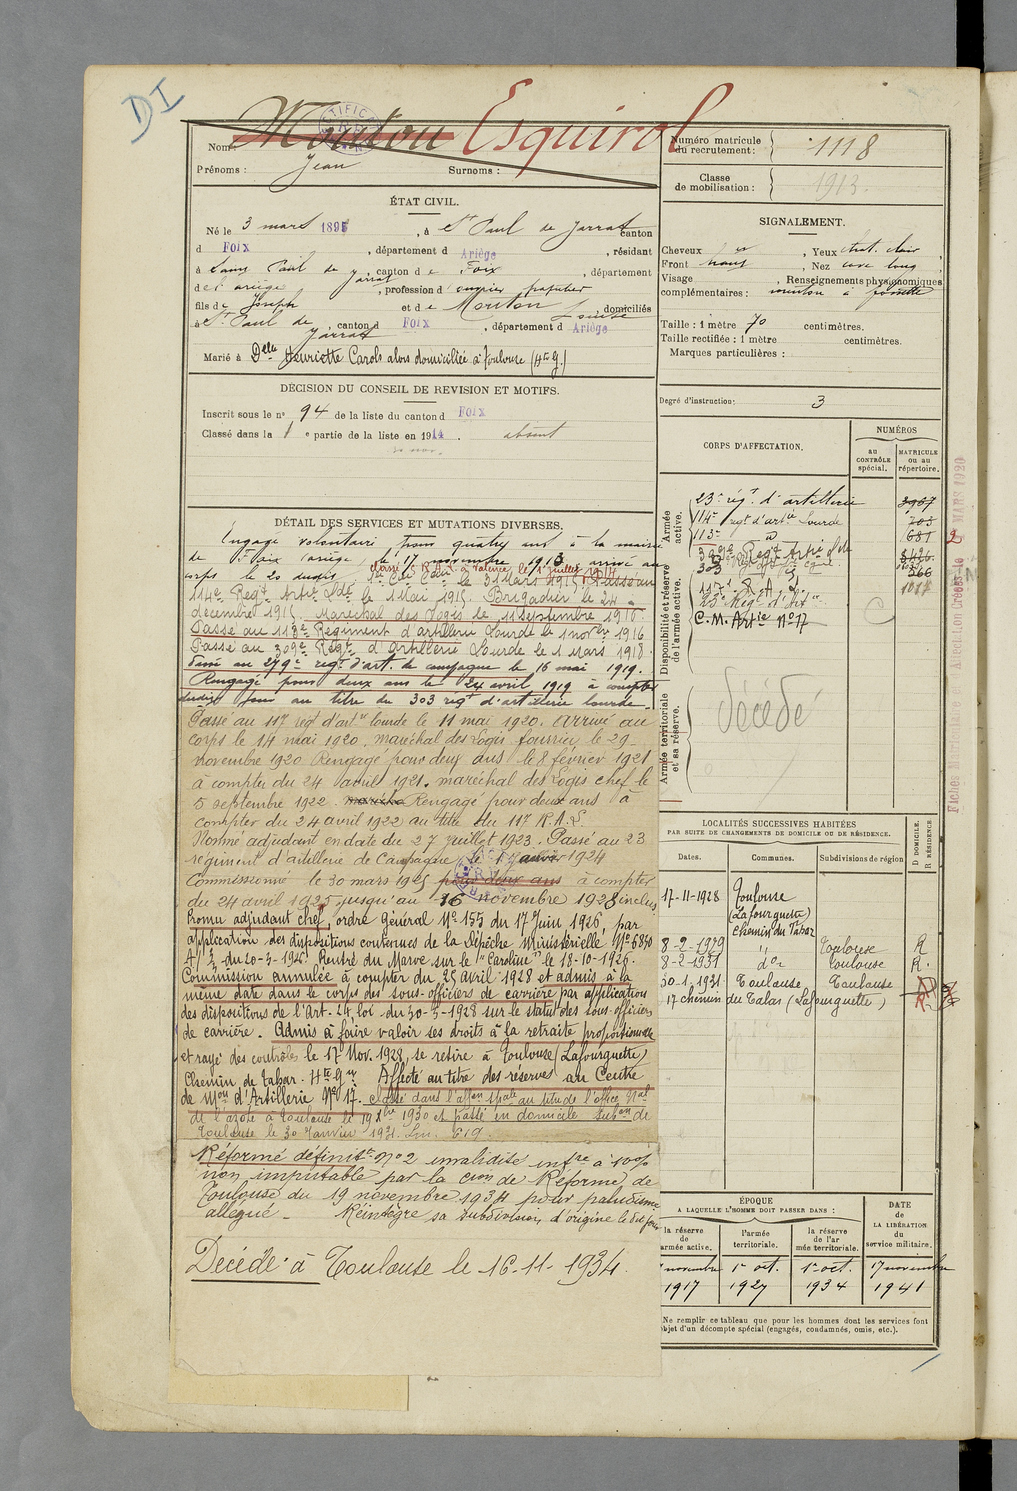 DI
Mouton Esquirol
Nom :
Prénoms : Jean Surnoms :
Numéro matricule du recrutement : 1118
Classe de mobilisation : 1913.
ÉTAT CIVIL.
Né le 3 mars 1895, à St Paul de Jarrat canton
d Foix, département d Ariège, résidant
à Saint Paul de Jarrat, canton de Foix, département
de l'ariège, profession d'ouvrier papetier
fils de Joseph et de Mouton Louise domiciliés
à St Paul de Jarrat, canton d Foix, département d Ariège
Marié à Delle Henriette Carols alors domiciliée à Toulouse (Hte G.)
DÉCISION DU CONSEIL DE REVISION ET MOTIFS.
Inscrit sous le n° 94 de la liste du canton d Foix
Classé dans la 1 e partie de la liste en 1914. absent
DÉTAIL DES SERVICES ET MUTATIONS DIVERSES.
Engagé volontaire pour quatre ans à la mairie
de Foix (ariège), le 17 novembre 1913 arrivé au
corps le 20 dudit,
le 31 Mars 1915. Passé au
114e Régt Artie Lde le 1 Mai 1915. Brigadier le 24
décembre 1915. Maréchal des Logis le 11 Septembre 1916.
Passé au 113e Régiment d'artillerie Lourde le 1 novbre 1916
Passé au 309e Régt d'Artillerie Lourde le 1 Mars 1918.
Passé au 279e regt d'art. de campagne le 16 mai 1919.
Rengagé pour deux ans le 24 avril 1919 à compter
dudit jour au titre du 303 regt d'artillerie lourde.
Passé au 117 regt d'artie lourde le 11 mai 1920. Arrivé au
corps le 14 mai 1920. maréchal des Logis fourrier le 29
novembre 1920 Rengagé pour deux ans le 8 février 1921
à compter du 24 avril 1921. maréchal des Logis chef le
5 septembre 1922. Rengagé pour deux ans à
compter du 24 avril 1922 au titre du 117 R.A.L.
Nommé adjudant en date du 27 juillet 1923. Passé au 23
régiment d'artillerie de Campagne le 1 janvier 1924
Commissionné le 30 mars 1925 pour deux ans à compter
du 24 avril 1925 jusqu'au 16 novembre 1928 inclus
Promu adjudant chef, ordre général No 155 du 17 Juin 1926, par
application des dispositions contenues de la Dépêche Ministérielle No 6840
du 20-3-1926. Rentré du Maroc sur le "Caroline" le 18-10-1926.
Commission annulée à compter du 25 avril 1928 et admis à la
même date dans le corps des sous-officiers de carrière par application
des dispositions de l'art. 24, loi du 30-3-1928 sur le statut des sous-officiers
de carrière. Admis à faire valoir ses droits à la retraite proportionnelle
et rayé des contrôles le 17 Nov. 1928, se retire à Toulouse (Lafourguette)
Chemin de Tabar. Hte Gne Affecté au titre des réserves au Centre
de Mon d'Artillerie No 17. Classé dans l'affon spale au titre de l'office Nal
de l'azote à Toulouse le 1930 et passé en domicile subon de
Toulouse le 30 Janvier 1931.
Réformé définitt No 2 invalidité infre à 100%
non imputable par la Con de Réforme de
Toulouse du 19 novembre 1934 pour paludisme
allégué - Réintègre sa subdivision d'origine le dit jour
Décédé à Toulouse le 16-11-1934.
SIGNALEMENT.
Cheveux , Yeux chat. clair
Front haut, Nez cave long,
Visage , Renseignements physionomiques
complémentaires : menton à fossette
Taille : 1 mètre 70 centimètres.
Taille rectifiée : 1 mètre centimètres.
Marques particulières :
Degré d'instruction : 3
CORPS D'AFFECTATION.
NUMÉROS
au CONTRÔLE spécial.
MATRICULE ou au répertoire.
Armée active.
23e régt d'artillerie 3967
114e regt d'artie Lourde 703
113e d° 681
309e Regt Artie Lde 3426
303
117e R A L 1077
23e Régt d'Artie
C.M. Artie No 17
Disponibilité et réserve de l'armée active.
Armée territoriale et sa réserve.
décédé
Fiches Matricule
MARS 1920
LOCALITÉS SUCCESSIVES HABITÉES
PAR SUITE DE CHANGEMENTS DE DOMICILE OU DE RÉSIDENCE.
Dates. Communes. Subdivisions de région
D DOMICILE. R RÉSIDENCE
17-11-1928 Toulouse
(Lafourguette)
Chemin du Tabar
8-2-1929 " Toulouse R
8-2-1931 do Toulouse R.
30-1-1931 Toulouse Toulouse
17 chemin de Tabar (Lafourguette)
ÉPOQUE
A LAQUELLE L'HOMME DOIT PASSER DANS :
DATE de LA LIBÉRATION du service militaire.
la réserve de l'armée active.
l'armée territoriale.
la réserve de l'armée territoriale.
novembre 1er oct. 1er oct. 17 novembre
1917 1927 1934 1941
Ne remplir ce tableau que pour les hommes dont les services font
objet d'un décompte spécial (engagés, condamnés, omis, etc.).